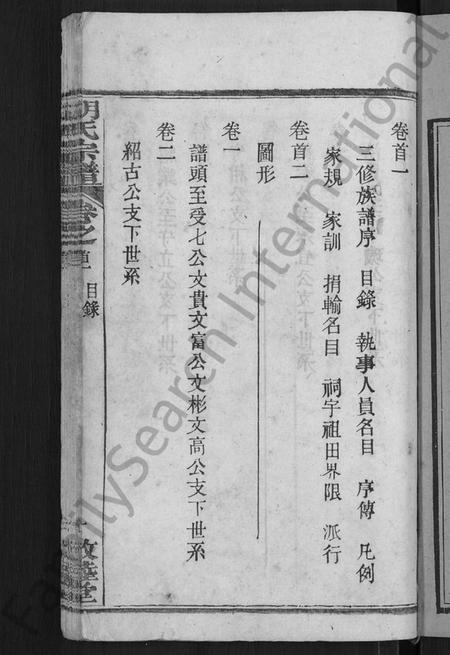 卷首一
三修族譜序 目錄 執事人員名目 序傳 凡例
家規 家訓 捐輸名目 祠宇祖田界限 派行
卷首二
圖形
卷一
譜頭至受七公文貴文富公文彬文高公支下世系
卷二
紹古公支下世系
胡氏宗譜 卷之首一 目錄 一 敦睦堂
FamilySearch International